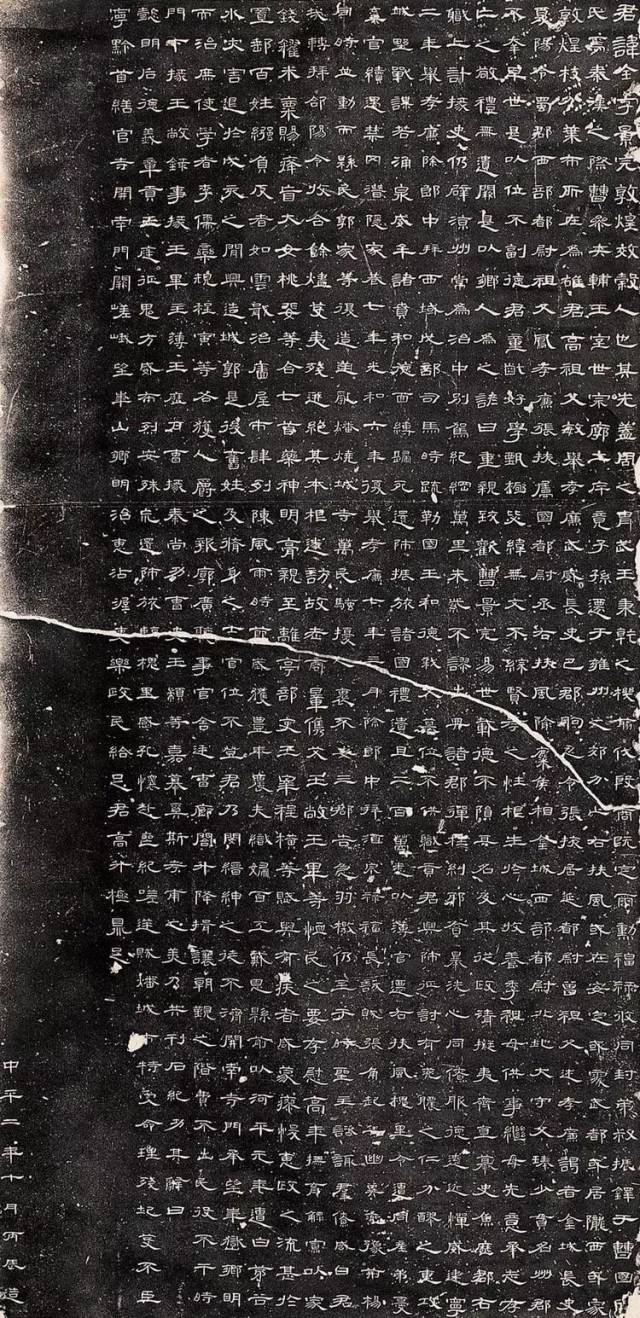 君諱全字景完敦煌效穀人也其先蓋周之胄武王秉乾之機翦伐殷商既定爾勳福祿攸同封弟叔振鐸于曹國因
氏焉秦漢之際曹參夾輔王室世宗廓土斥竟子孫遷于雍州之郊分止右扶風或在安定或處武都或居隴西或家
敦煌枝分葉布所在為雄君高祖父敏舉孝廉武威長史巴郡朐忍令張掖居延都尉曾祖父述孝廉謁者金城長史
夏陽令蜀郡西部都尉祖父鳳孝廉張掖屬國都尉丞右扶風隃麋侯相金城西部都尉北地大守父琫少貫名州郡
不幸早世是以位不副德君童齔好學甄極毖緯無文不綜賢孝之性根生於心收養季祖母供事繼母先意承志存
亡之敬禮無遺闕是以鄉人為之諺曰重親致歡曹景完易世載德不隕其名及其從政清擬夷齊直慕史魚歷郡右
職上計掾史仍辟涼州常為治中別駕紀綱萬里朱紫不謬出典諸郡彈枉糾邪貪暴洗心同僚服德遠近憚威建寧
二年舉孝廉除郎中拜西域戊部司馬時疏勒國王和德弒父篡位不供職貢君興師征討有吮膿之仁分醪之惠攻
城野戰謀若涌泉威牟諸賁和德面縛歸死還師振旅諸國禮遺且二百萬悉以薄官遷右扶風槐里令遭同產弟憂
棄官續遇禁冈潛隱家巷七年光和六年復舉孝廉七年三月除郎中拜酒泉祿福長訞賊張角起兵幽冀兗豫荊楊
同時並動而縣民郭家等復造逆亂燔燒城寺萬民騷擾人褱不安三郡告急羽檄仍至于時聖主諮諏群僚咸曰君
哉轉拜郃陽令收合餘燼芟夷殘迸絕其本根遂訪故老商量儁艾王敞王畢等恤民之要存慰高年撫育鰥寡以家
錢糴米粟賜癃盲大女桃婓等合七首藥神明膏親至離亭部吏王宰程橫等賦與有疾者咸蒙瘳悛惠政之流甚於
置郵百姓繈負反者如雲戢治廧屋市肆列陳風雨時節歲獲豐年農夫織婦百工戴恩縣前以河平元年遭白茅谷
水灾害退於戍亥之間興造城郭是後舊姓及脩身之士官位不登君乃閔縉紳之徒不濟開南寺門承望華嶽鄉明
而治庶使學者李儒欒規程寅等各獲人爵之報廓廣聽事官舍廷曹廊閤升降揖讓朝覲之階費不出民役不干時
門下掾王敞錄事掾王畢主簿王歷戶曹掾秦尚功曹史王顓等嘉慕奚斯考甫之美乃共刊石紀功其辭曰
懿明后德義章貢王庭征鬼方威布烈安殊巟還師旅臨槐里感孔懷赴喪紀嗟逆賊燔城市特受命理殘圮芟不臣
寧黔首繕官寺開南門闕嵯峨望華山鄉明治惠沾渥吏樂政民給足君高升極鼎足
中平二年十月丙辰造